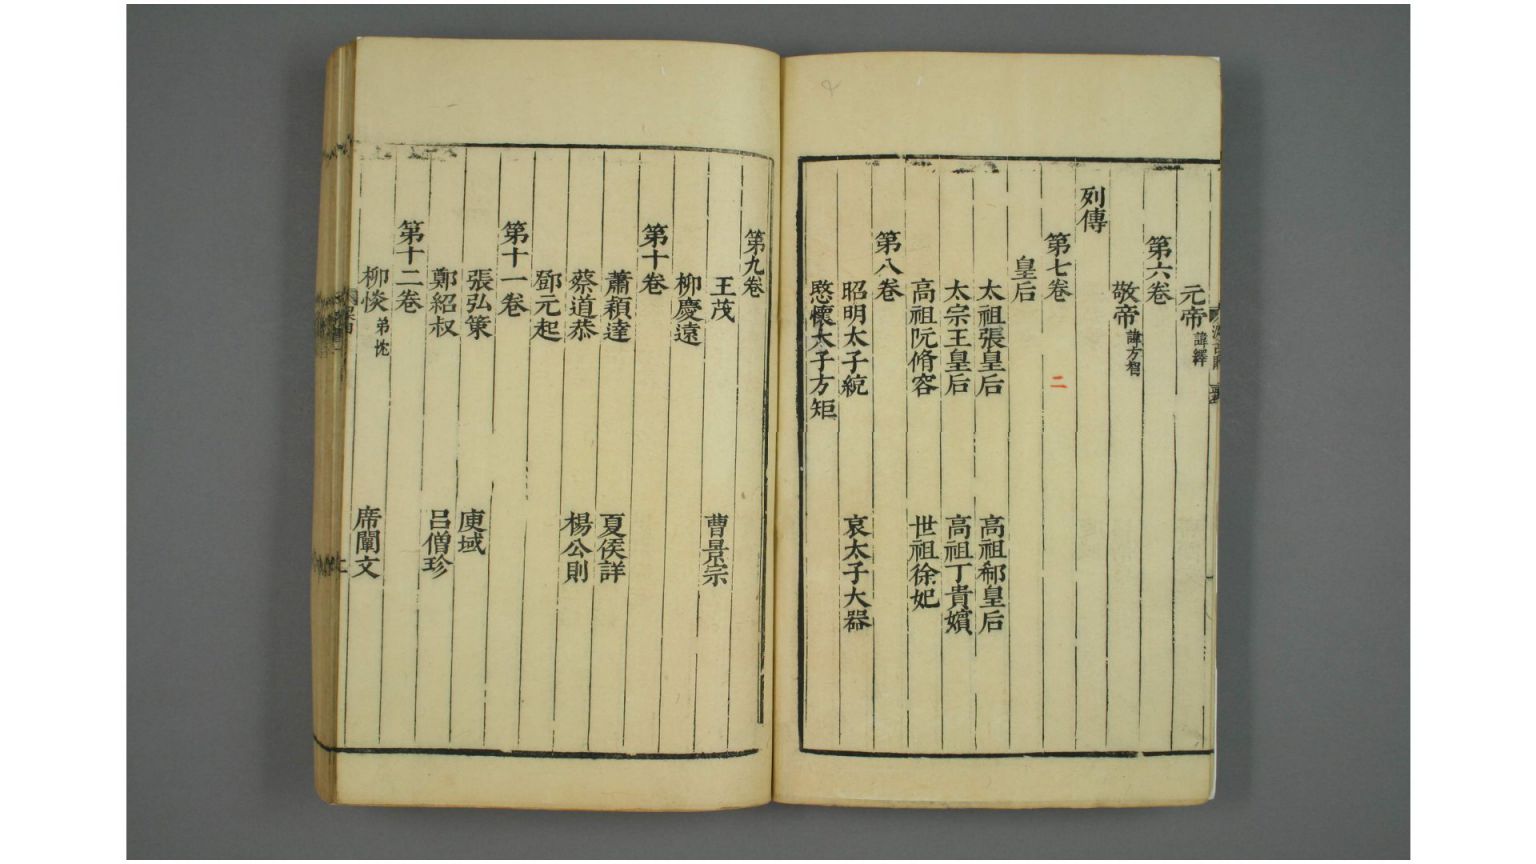 元帝 諱繹
第六卷
敬帝 諱方智
列傳
第七卷
二
皇后
太祖張皇后 高祖郗皇后
太宗王皇后 高祖丁貴嬪
高祖阮脩容 世祖徐妃
第八卷
昭明太子統 哀太子大器
愍懷太子方矩
第九卷
王茂 曹景宗
柳慶遠
第十卷
蕭穎達 夏侯詳
蔡道恭 楊公則
鄧元起
第十一卷
張弘策 庾域
鄭紹叔 呂僧珍
第十二卷
柳惔 弟忱 席闡文